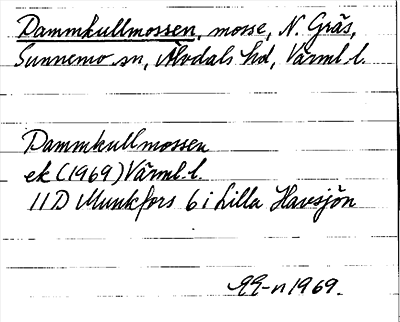 Dammkullmossen, mosse, N. Gräs,
Sunnemo sn, Älvdals hd, Värml. l.
Dammkullmossen
ek (1969) Värml. l.
11D Munkfors 6 i Lilla Havsjön
1969.